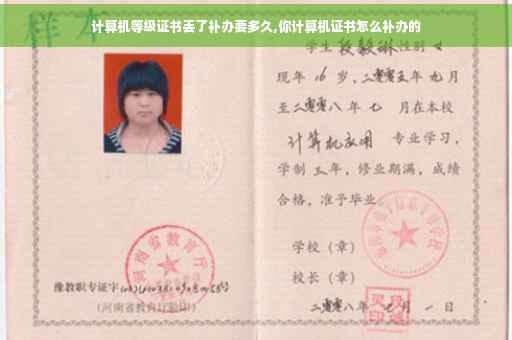 计算机等级证书丢了补办要多久,你计算机证书怎么补办的
样本
学生段毅琳性别女
现年16岁,二零零五年九月
至二零零八年七月在本校
计算机应用 专业学习,
学制三年,修业期满,成绩
合格,准予毕业
学校(章)
校长(章)
二零零八年七月一日
河南省教育厅
豫教职专证字
(河南省教育厅验印)